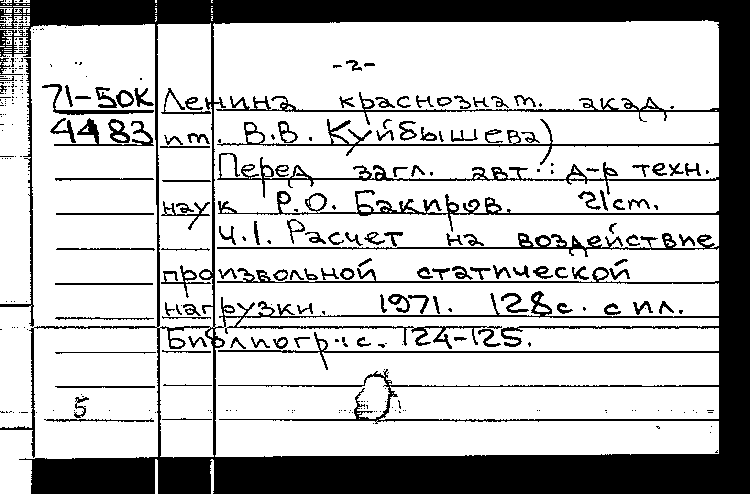 -2-
71-50К Ленина краснознам. акад.
4483 им. В.В. Куйбышева)
Перед загл. авт.: д-р техн.
наук Р.О. Бакиров. 21см.
Ч.1. Расчет на воздействие
произвольной статической
нагрузки. 1971. 128с. с ил.
Библиогр.: с. 124-125.
5